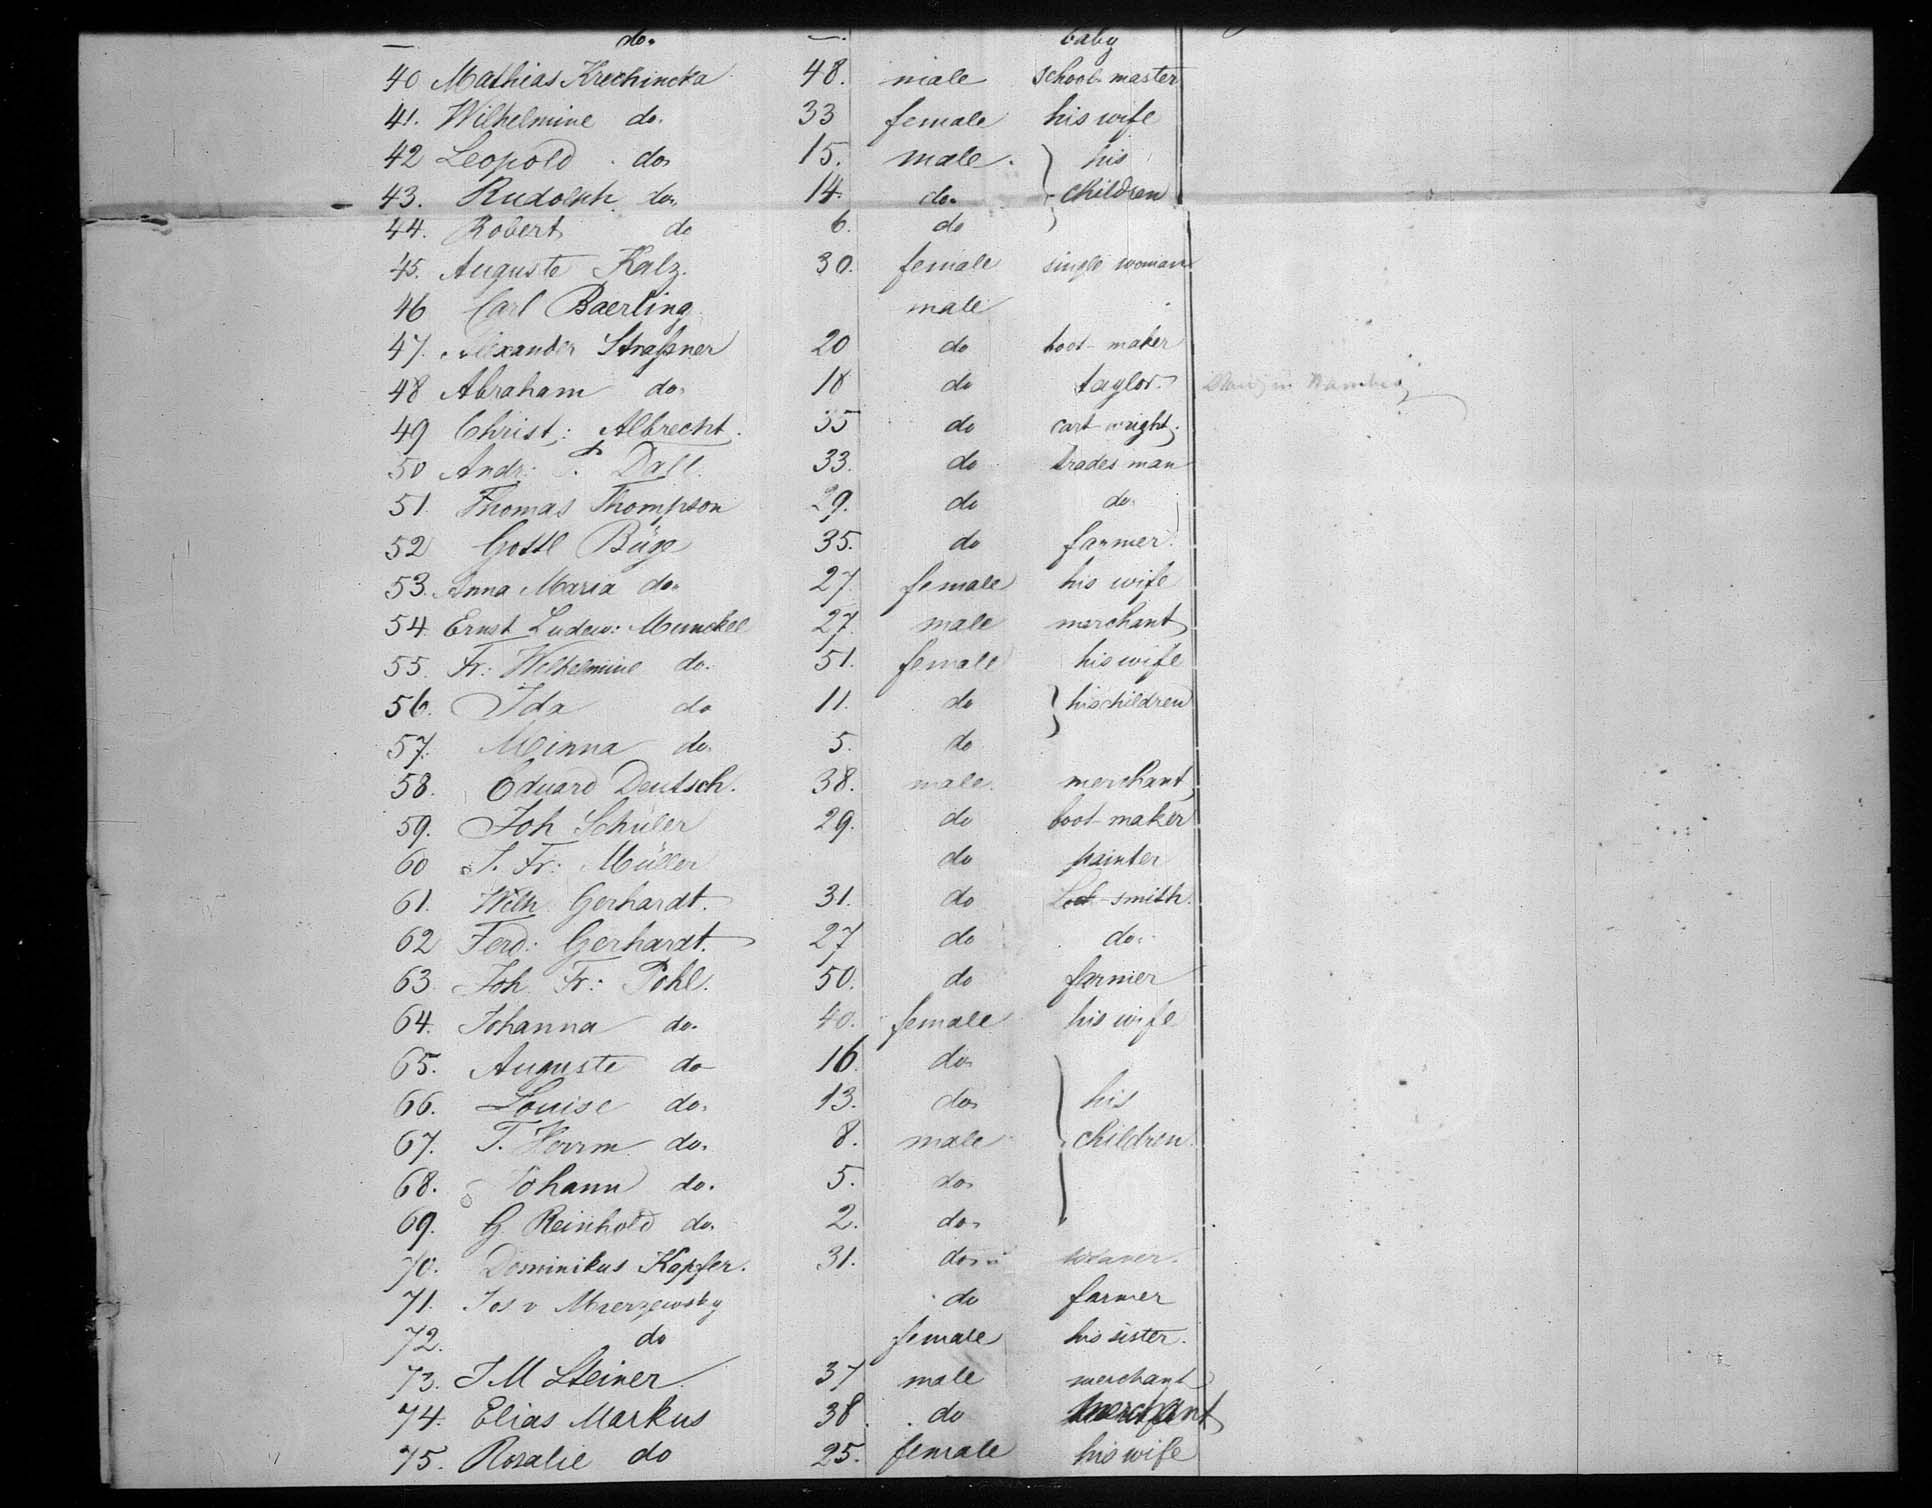 — do. — baby
40 Mathias Krechincka 48. male school-master
41. Wilhelmine do. 33 female his wife
42 Leopold do. 15. male. his
43. Rudolph do. 14. do. children
44. Robert do 6. do
45. Auguste Kalz. 30. female single woman
46 Carl Baerling male
47. Alexander Straßner 20 do boot-maker
48 Abraham do. 18 do taylor.
49 Christ: Albrecht. 35 do cart-wright.
50 Andr: P. Dall. 33. do trades man
51. Thomas Thompson 29. do do.
52 Gottl Büge 35. do farmer.
53. Anna Maria do. 27 female his wife
54. Ernst Ludew: Munckel 27. male merchant
55. Fr: Wilhelmine do. 51. female his wife
56. Ida do 11. do his children
57. Minna do. 5. do
58. Eduard Deutsch. 38. male. merchant
59. Joh Schüler 29. do boot-maker
60 J. Fr: Müller do painter
61. Wilh Gerhardt. 31. do smith.
62 Ferd: Gerhardt. 27 do do.
63. Joh. Fr: Pohl. 50. do farmer
64. Johanna do. 40. female his wife
65. Auguste do 16. do.
66. Louise do. 13. do. his
67. T. Herrm do. 8. male children.
68. Johann do. 5. do.
69. G Reinhold do. 2. do.
70. Dominikus Kapfer. 31. do. weaver.
71. Jos v Mierzewsky do farmer
72. do female his sister.
73. J M Steiner 37 male merchant
74. Elias Markus 38. do merchant
75. Rosalie do 25. female his wife